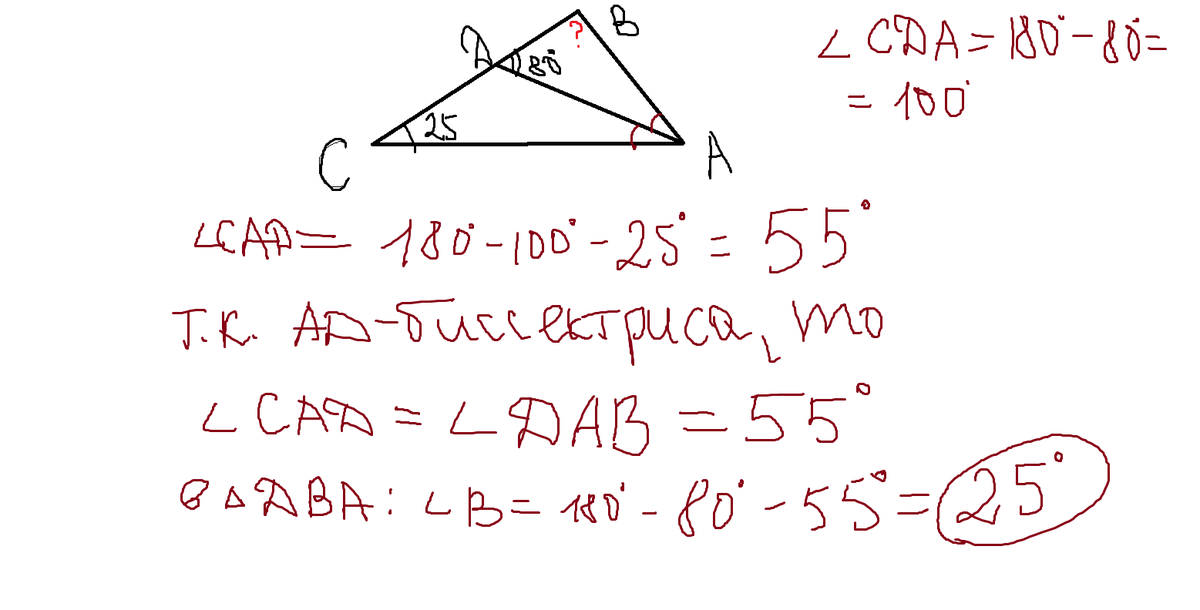 B
?
D 80°
25
C
A
∠ CDA = 180° - 80° =
= 100°
∠CAD = 180° - 100° - 25° = 55°
Т.К. AD - биссектриса, то
∠ CAD = ∠ DAB = 55°
В △ DBA: ∠ B = 180° - 80° - 55° = 25°